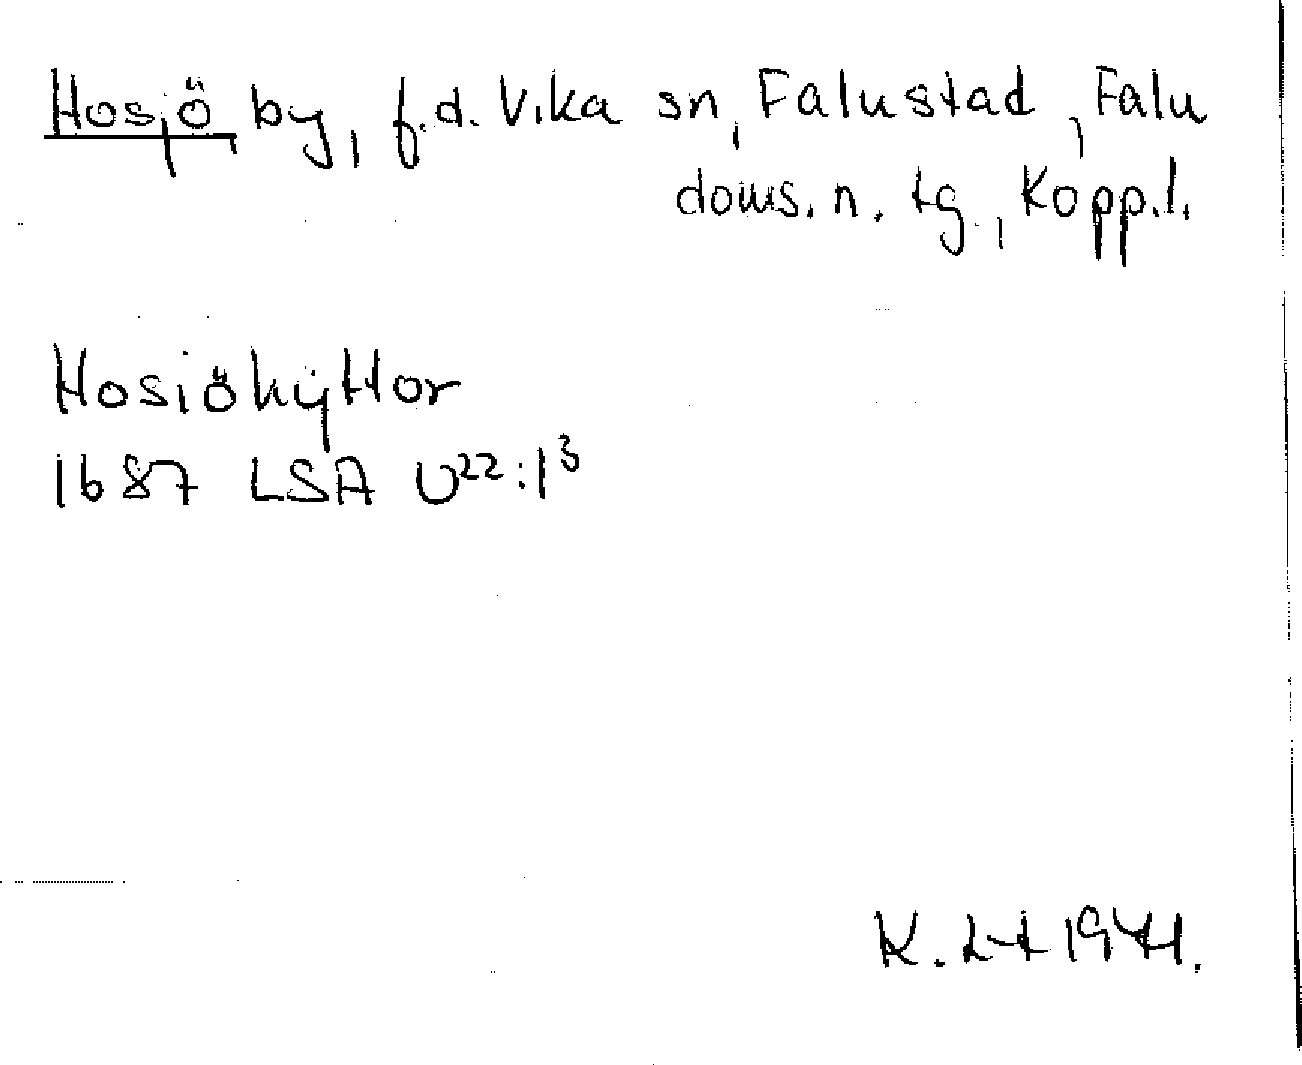 Hosjö by, f.d. Vika sn, Falu stad, Falu
doms. n. tg., Kopp. l.
Hosiöhÿttor
1687 LSA U22:1³
K. L-t 1941.